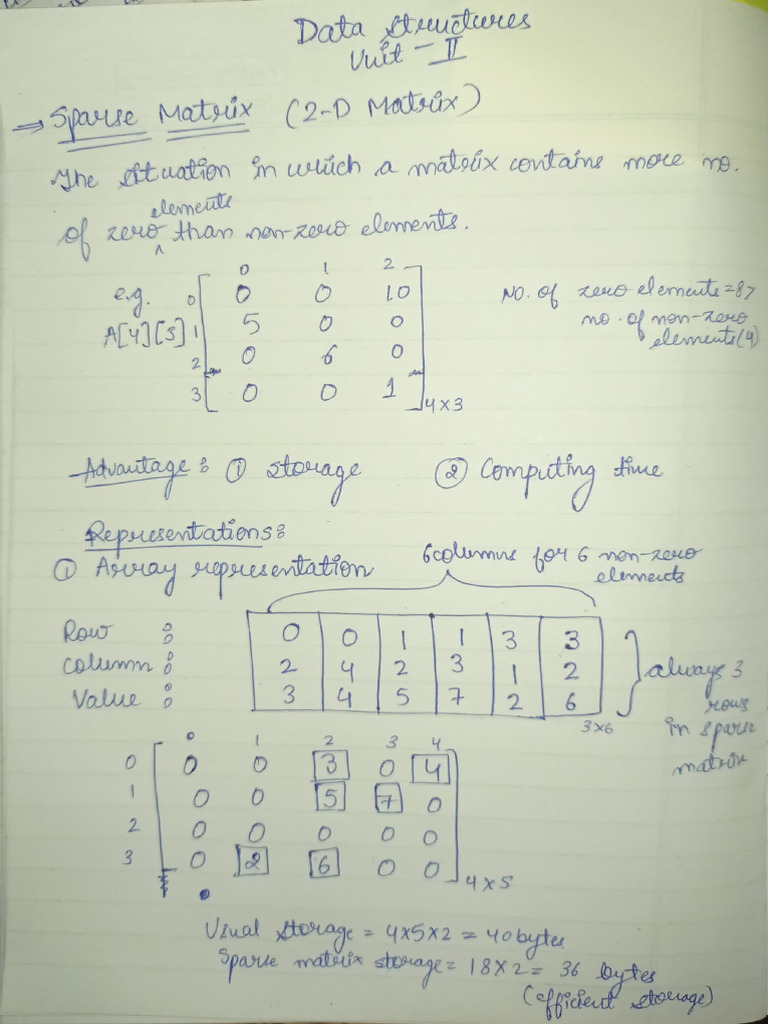 Data Structures
Unit - II
→ Sparse Matrix (2-D Matrix)
The situation in which a matrix contains more no.
of zero elements than non-zero elements.
0 1 2
e.g. 0 0 0 10 No. of zero elements = 8 >
A[4][3] 1 5 0 0 no. of non-zero
elements (4)
2 0 6 0
3 0 0 1
4x3
Advantage: ① Storage ② Computing time
Representations:
① Array representation
6 columns for 6 non-zero
elements
Row : 0 0 1 1 3 3
Column : 2 4 2 3 1 2
Value : 3 4 5 7 2 6
3x6
always 3
rows
in sparse
matrix
0 1 2 3 4
0 0 0 3 0 4
1 0 0 5 7 0
2 0 0 0 0 0
3 0 2 6 0 0
4x5
Usual storage = 4x5x2 = 40 bytes
Sparse matrix storage = 18x2 = 36 bytes
(efficient storage)